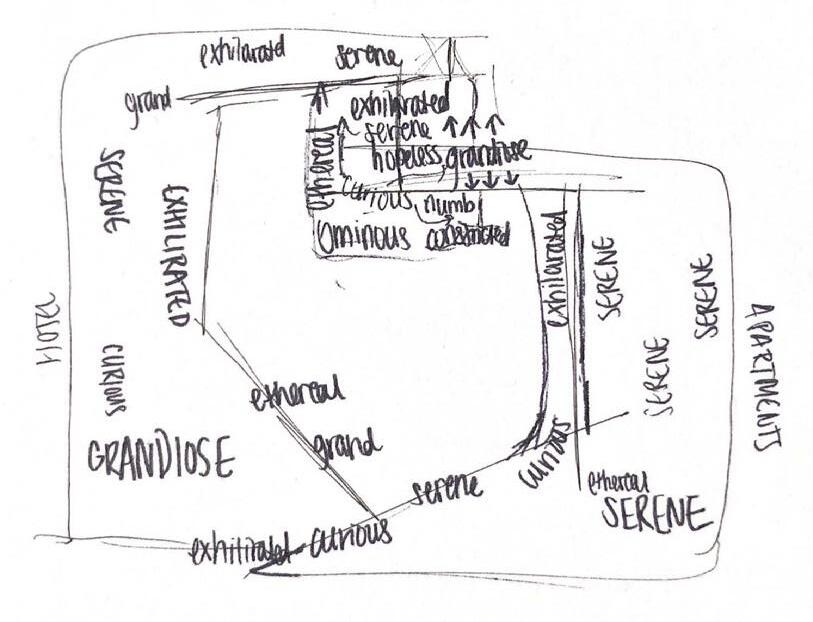 exhilarated
serene
grand
exhilarated
serene
ethereal
hopeless grandiose
curious
numb
ominous constricted
SERENE
EXHILIRATED
exhilarated
SERENE
SERENE
HOTEL
APARTMENTS
CURIOUS
SERENE
ethereal
grand
GRANDIOSE
curious
serene
ethereal
SERENE
exhilirated
curious